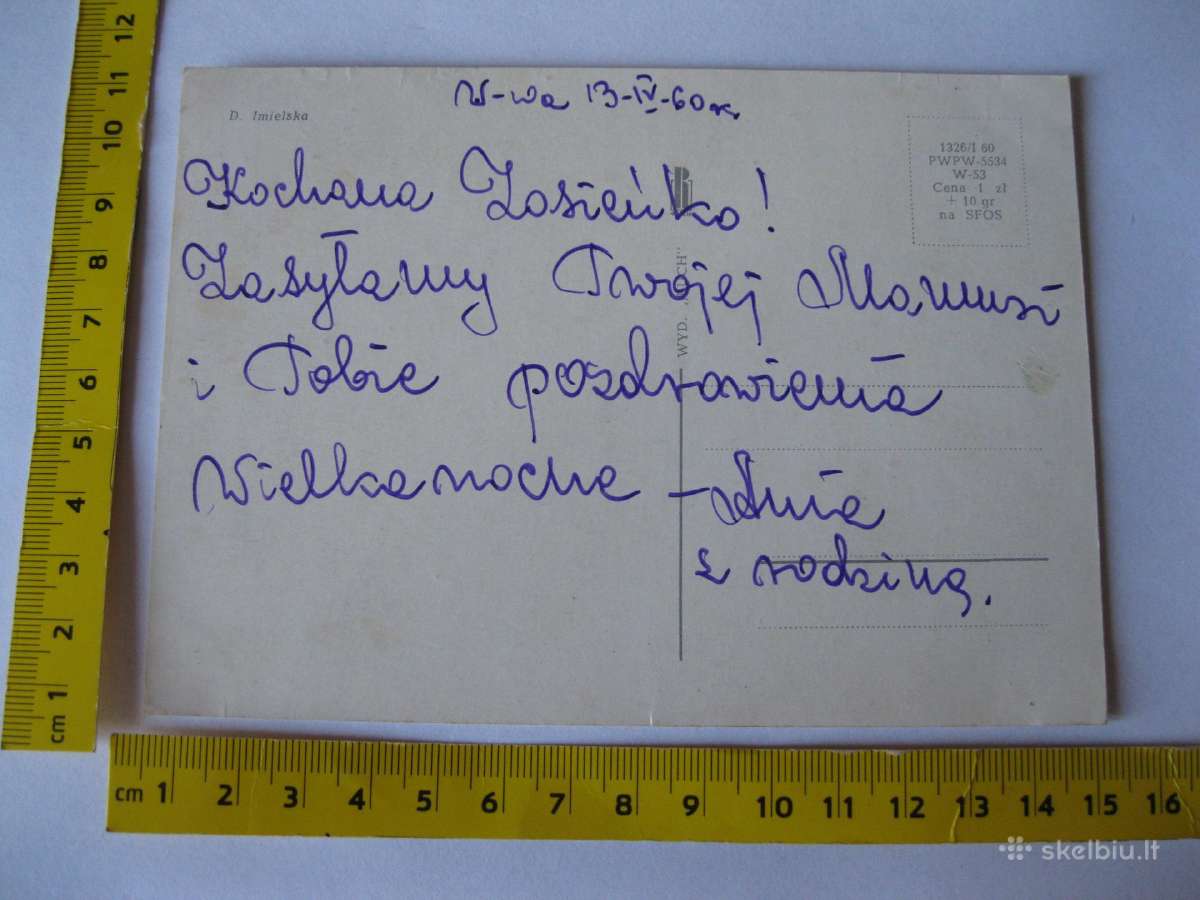 W-wa 13-IV-60 r.
D. Imielska
1326/I 60
PWPW-5534
W-53
Cena 1 zł
+ 10 gr
na SFOS
Kochana Zosieńko!
Zasyłamy Twojej Mamusi
i Tobie pozdrowienia
Wielkanocne – Ania
z rodziną.
WYD. „RUCH"
12
11
10
9
8
7
6
5
4
3
2
1
cm
cm 1 2 3 4 5 6 7 8 9 10 11 12 13 14 15 16
skelbiu.lt